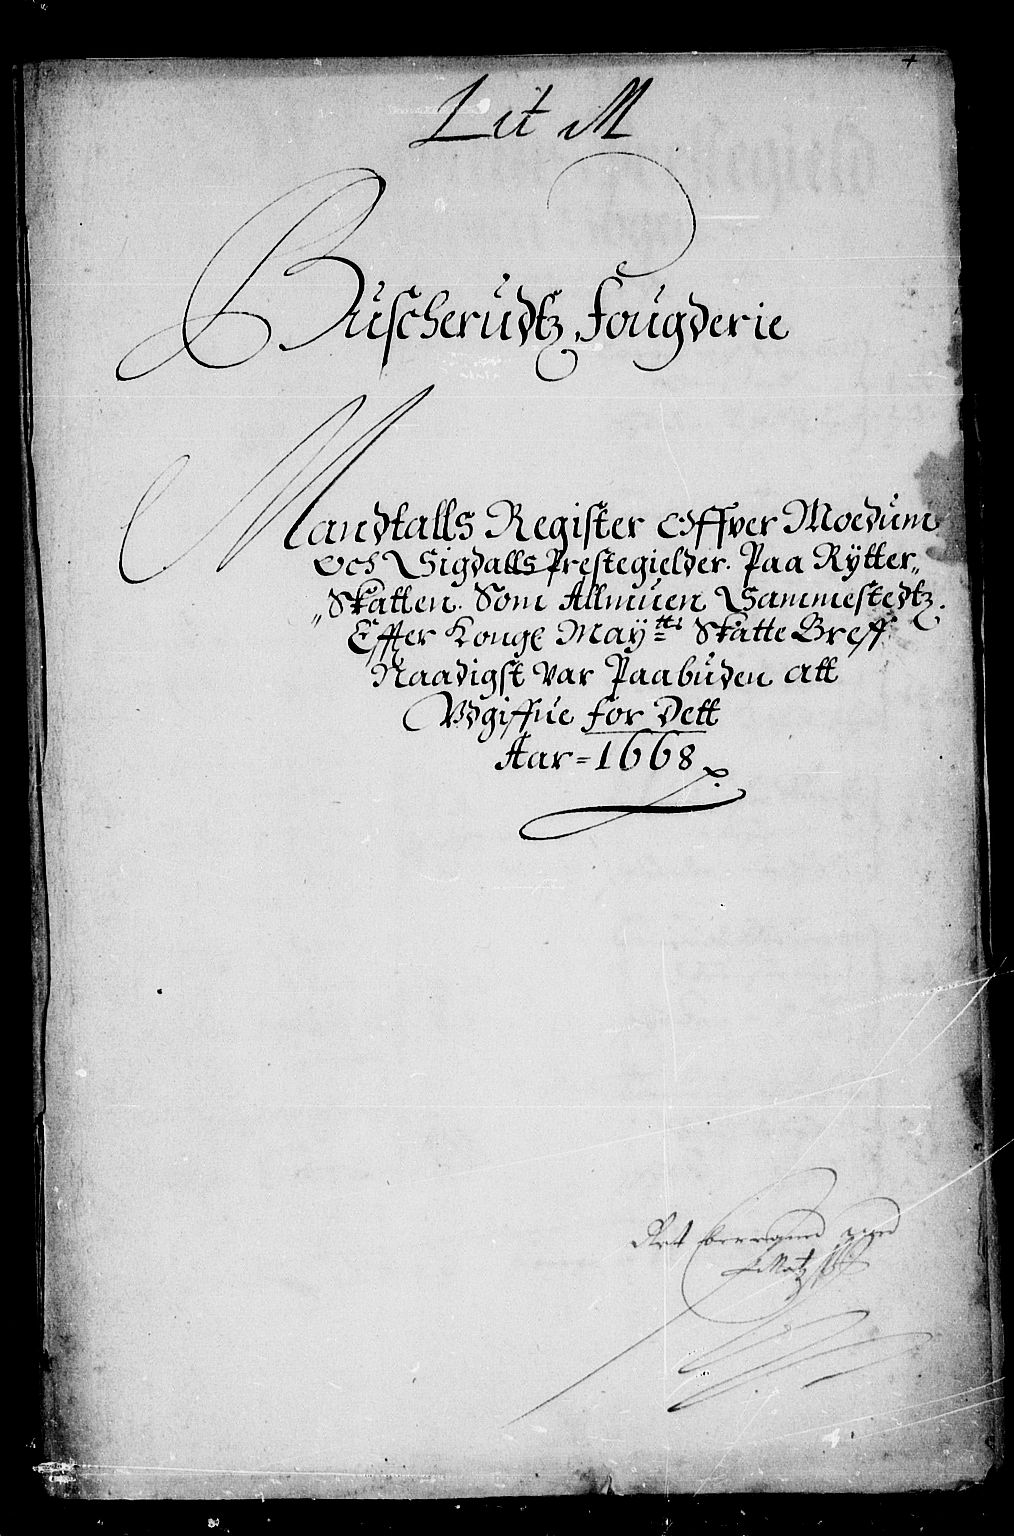 Lit M
Buscherudtz Fougderie
Mandtalls Register offver Moedum
och Sigdalls Prestegielder. Paa Rytter„
„Skatten. Som Allmuen Sammestedtz.
Effter Kongl May:tts Skatte Breff
Naadigst var Paabuden att
Vdgiffue for Dett
Aar=1668
Ret